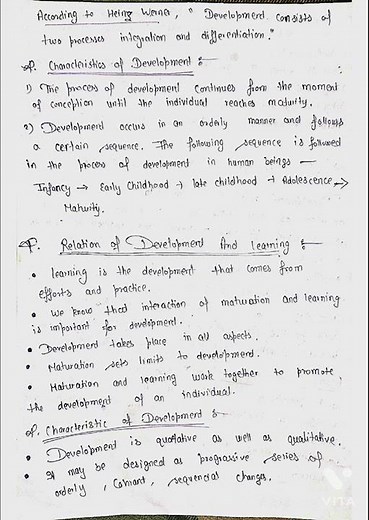 According to Heinz Werner, " Development consists of
two processes integration and differentiation."
Characteristics of Development :-
1) The process of development continues from the moment
of conception until the individual reaches maturity.
2) Development occurs in an orderly manner and follows
a certain sequence. The following sequence is followed
in the process of development in human beings —
Infancy → Early childhood → late childhood → Adolescence →
Maturity.
Relation of Development And learning :-
• learning is the development that comes from
efforts and practice.
• We know that interaction of maturation and learning
is important for development.
• Development takes place in all aspects.
• Maturation sets limits to development.
• Maturation and learning work together to promote
the development of an individual.
Characteristic of Development :-
• Development is as well as qualitative.
• It may be designed as progressive series of
orderly, sequencial changes.
VITA